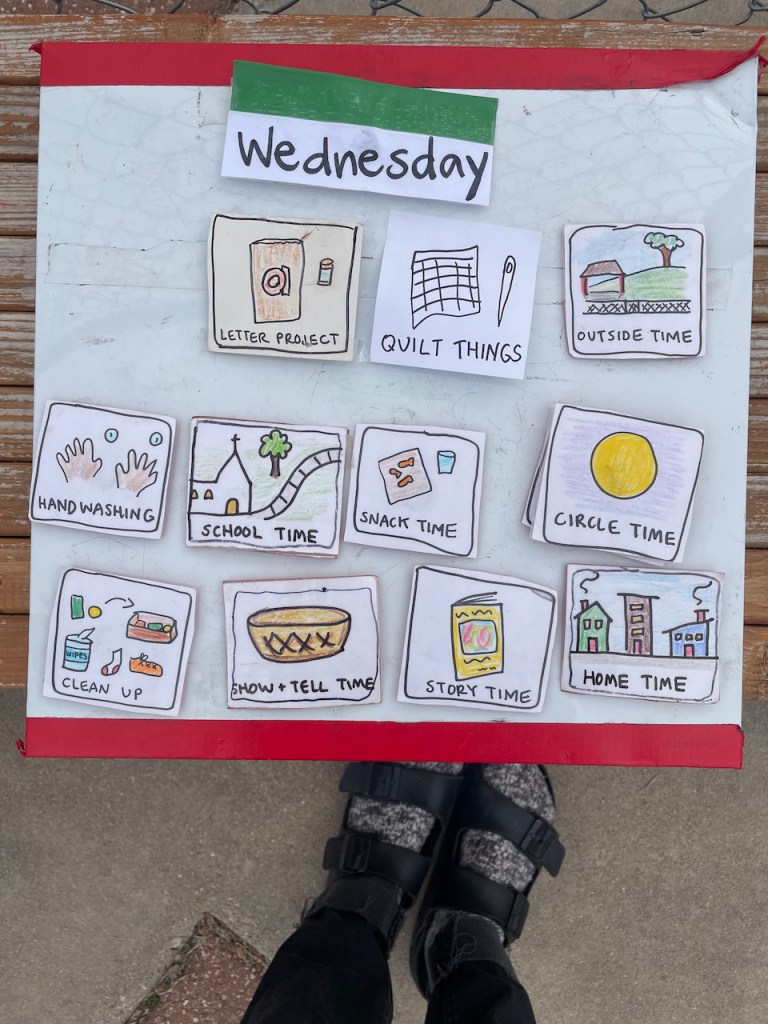 Wednesday
LETTER PROJECT
QUILT THINGS
OUTSIDE TIME
HANDWASHING
SCHOOL TIME
SNACK TIME
CIRCLE TIME
WIPES
CLEAN UP
SHOW + TELL TIME
STORY TIME
HOME TIME